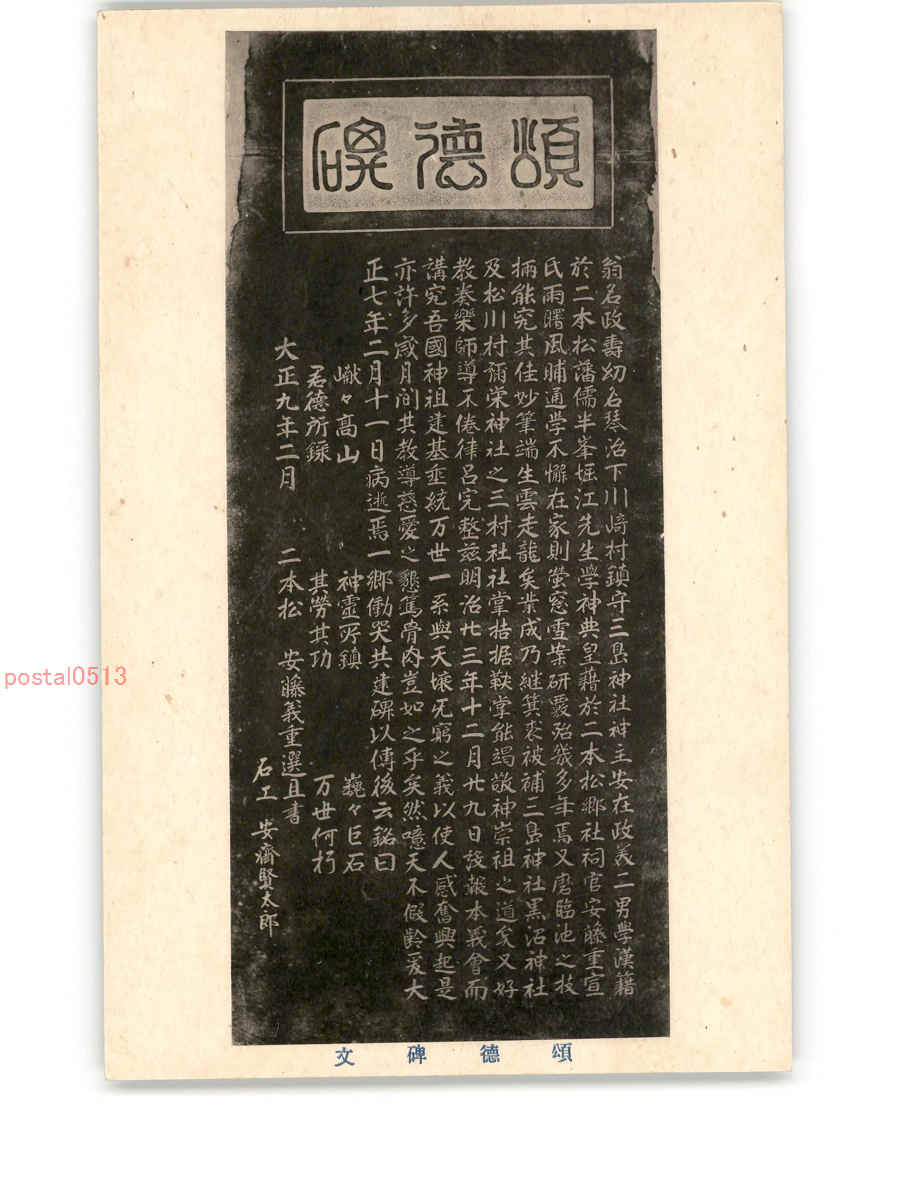 頌德碑
翁名政壽幼名琹治下川﨑村鎮守三島神社神主安在政美二男學漢籍
於二本松藩儒半峯堀江先生學神典皇籍於二本松鄉社祠官安藤重宣
氏雨曙風晡通學不懈在家則螢窓雪案研覈殆幾多年焉又磨臨池之技
柄能究其佳妙筆端生雲走龍矣業成乃継箕裘被補二島神社黒沼神社
及松川村諏訪神社之三村社社掌拮据鞅掌能竭敬神崇祖之道矣又好
教奏樂師導不倦律呂完整茲明治廿三年十二月廿九日設報本義會而
講究吾國神祖建基垂統万世一系與天壌旡窮之義以使人感奮興起是
亦許多歲月間其教導慈愛之懇篤骨肉豈如之乎矣然噫天不假齡爰大
正七年二月十一日病逝焉一鄉働哭共建碑以傳後云銘曰
巘々髙山　神霊所鎮　巍々巨石
君德所錄　其勞其功　万世何朽
大正九年二月　二本松　安藤義重選且書
石工　安齋賢太郎
頌德碑文
postal0513